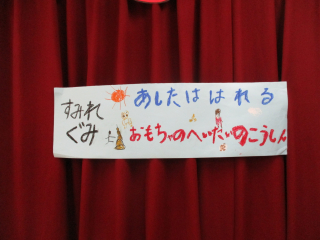 すみれ
ぐみ
あしたははれる
おもちゃのへいたいのこうしん